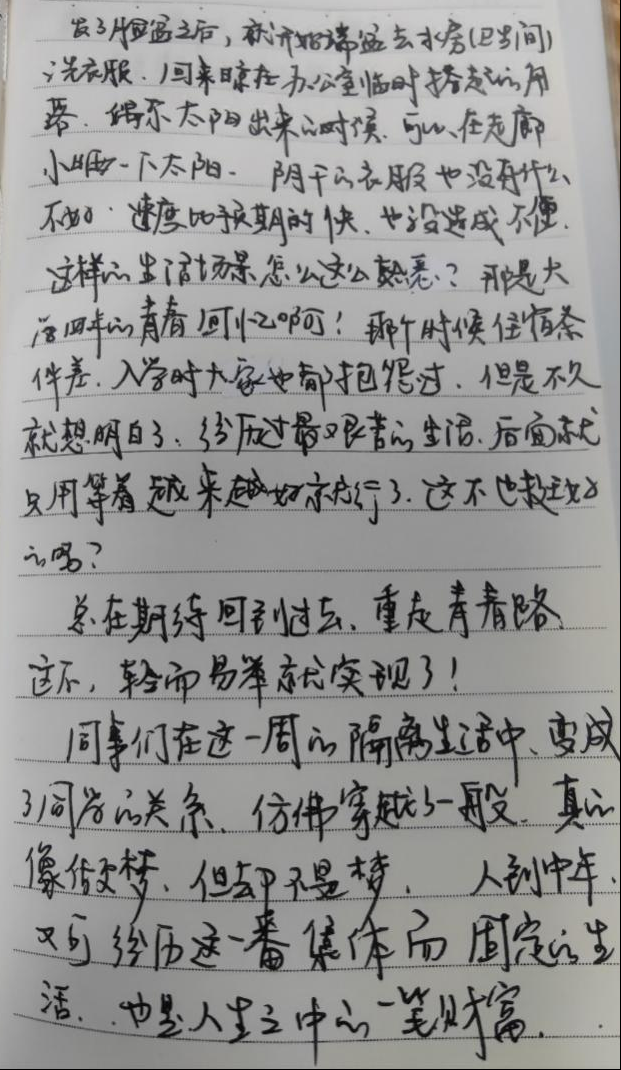 发了脸盆之后，就开始端盆去水房(卫生间)
洗衣服．回来晾在办公室临时搭起的角
落．偶尔太阳出来的时候．可以在走廊
小晒一下太阳．阴干的衣服也没有什么
不好．速度比预期的快．也没造成不便．
这样的生活场景怎么这么熟悉？那是大
学四年的青春回忆啊！那个时候住宿条
件差．入学时大家也都抱怨过．但是不久
就想明白了．经历过最艰苦的生活．后面就
只用等着越来越好就行了．这不也挺好
的吗？
总在期待回到过去．重走青春路．
这不，轻而易举就实现了！
同事们在这一周的隔离生活中．变成
了同学的关系．仿佛穿越了一般．真的
像做梦．但却不是梦．人到中年．
又可经历这一番集体而固定的生
活．也是人生之中的一笔财富．